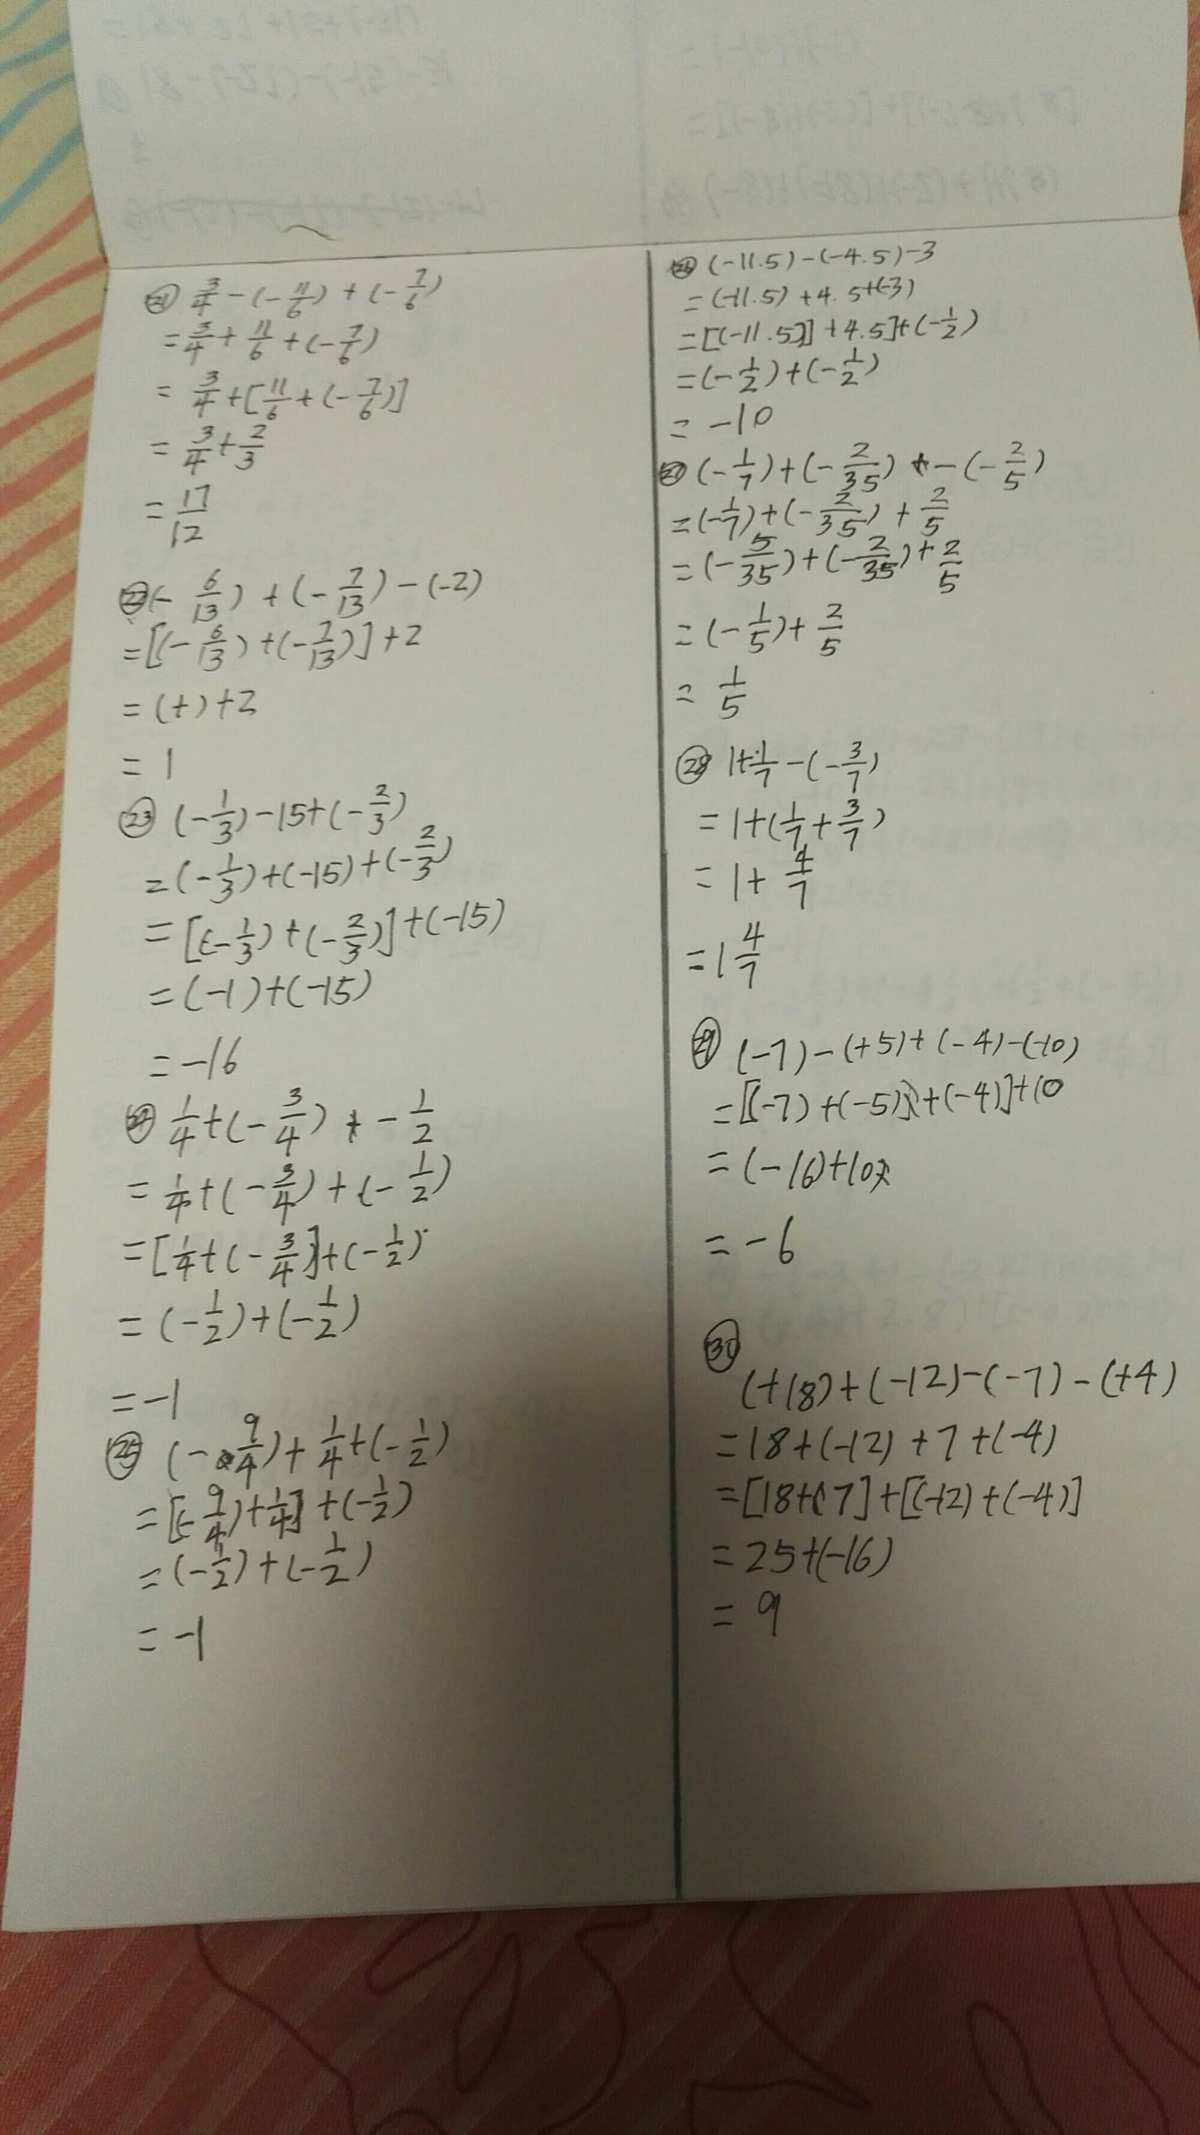 ㉑ 3/4 - (-11/6) + (-7/6)
= 3/4 + 11/6 + (-7/6)
= 3/4 + [11/6 + (-7/6)]
= 3/4 + 2/3
= 17/12
㉒ (-6/13) + (-7/13) - (-2)
= [(-6/13) + (-7/13)] + 2
= (+) + 2
= 1
㉓ (-1/3) - 15 + (-2/3)
= (-1/3) + (-15) + (-2/3)
= [(-1/3) + (-2/3)] + (-15)
= (-1) + (-15)
= -16
㉔ 1/4 + (-3/4) - 1/2
= 1/4 + (-3/4) + (-1/2)
= [1/4 + (-3/4)] + (-1/2)
= (-1/2) + (-1/2)
= -1
㉕ (-9/4) + 1/4 + (-1/2)
= [(-9/4) + 1/4] + (-1/2)
= (-1/2) + (-1/2)
= -1
㉖ (-11.5) - (-4.5) - 3
= (-11.5) + 4.5 + (-3)
= [(-11.5)] + 4.5] + (-1/2)
= (-1/2) + (-1/2)
= -10
㉗ (-1/7) + (-2/35) - (-2/5)
= (-1/7) + (-2/35) + 2/5
= (-5/35) + (-2/35) + 2/5
= (-1/5) + 2/5
= 1/5
㉘ 1 + 1/7 - (-3/7)
= 1 + (1/7 + 3/7)
= 1 + 4/7
= 1 4/7
㉙ (-7) - (+5) + (-4) - (-10)
= [(-7) + (-5)] + (-4)] + 10
= (-16) + 10
= -6
㉚
(+18) + (-12) - (-7) - (+4)
= 18 + (-12) + 7 + (-4)
= [18 + (7] + [(-12) + (-4)]
= 25 + (-16)
= 9